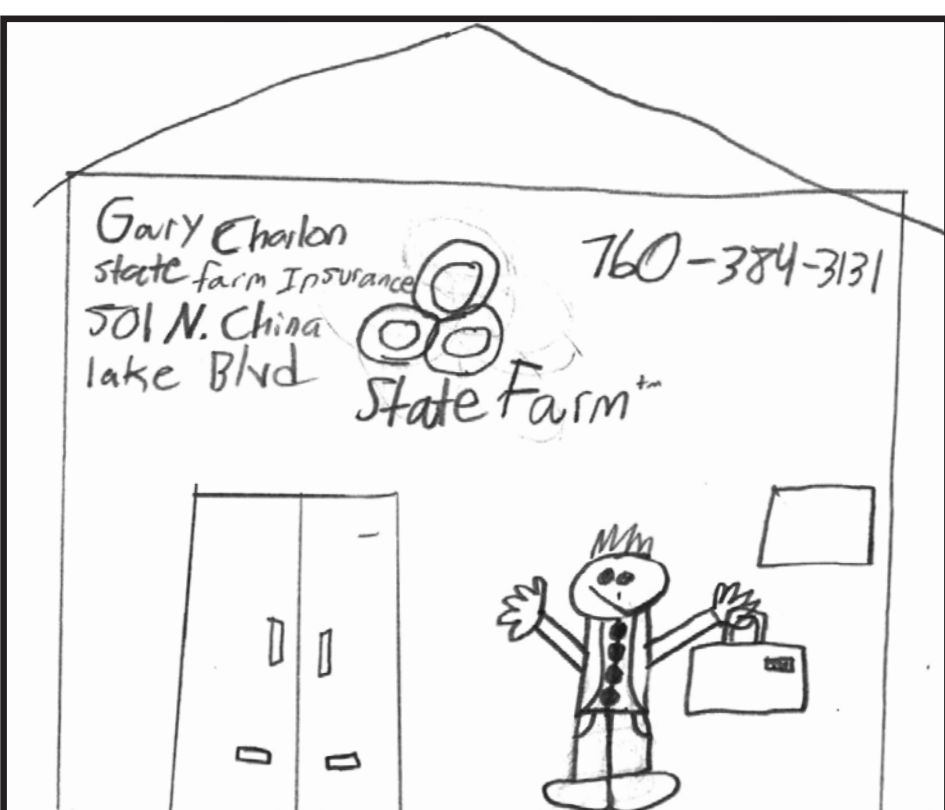 Gary Charlon
state farm Insurance
501 N. China
lake Blvd
760-384-3131
State Farm™